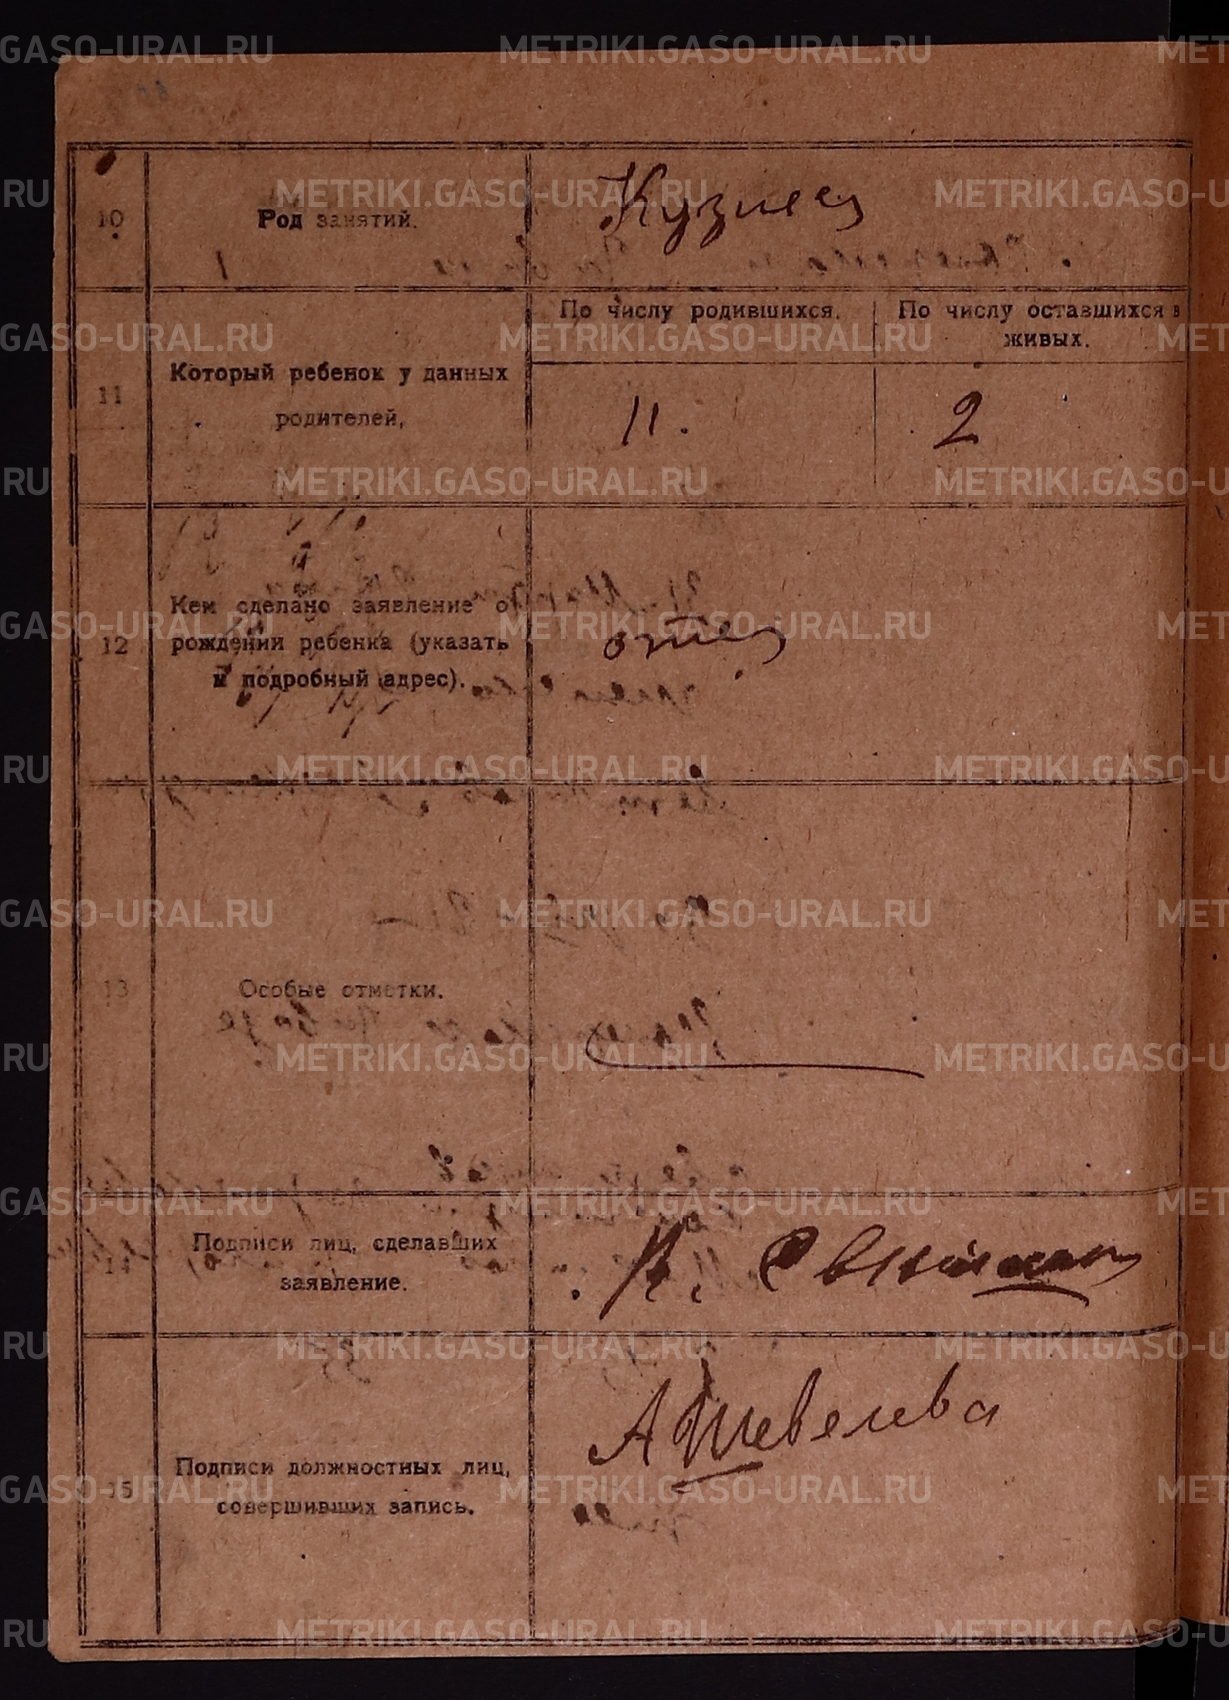 10
Род занятий.
Кузнец
11
Который ребенок у данных
родителей,
По числу родившихся.
По числу оставшихся в
живых.
11.
2
12
Кем сделано заявление о
рождении ребенка (указать
и подробный адрес).
отец
13
Особые отметки.
Подписи лиц, сделавших
заявление.
15
Подписи должностных лиц,
совершивших запись.
А Шевелева
METRIKI.GASO-URAL.RU